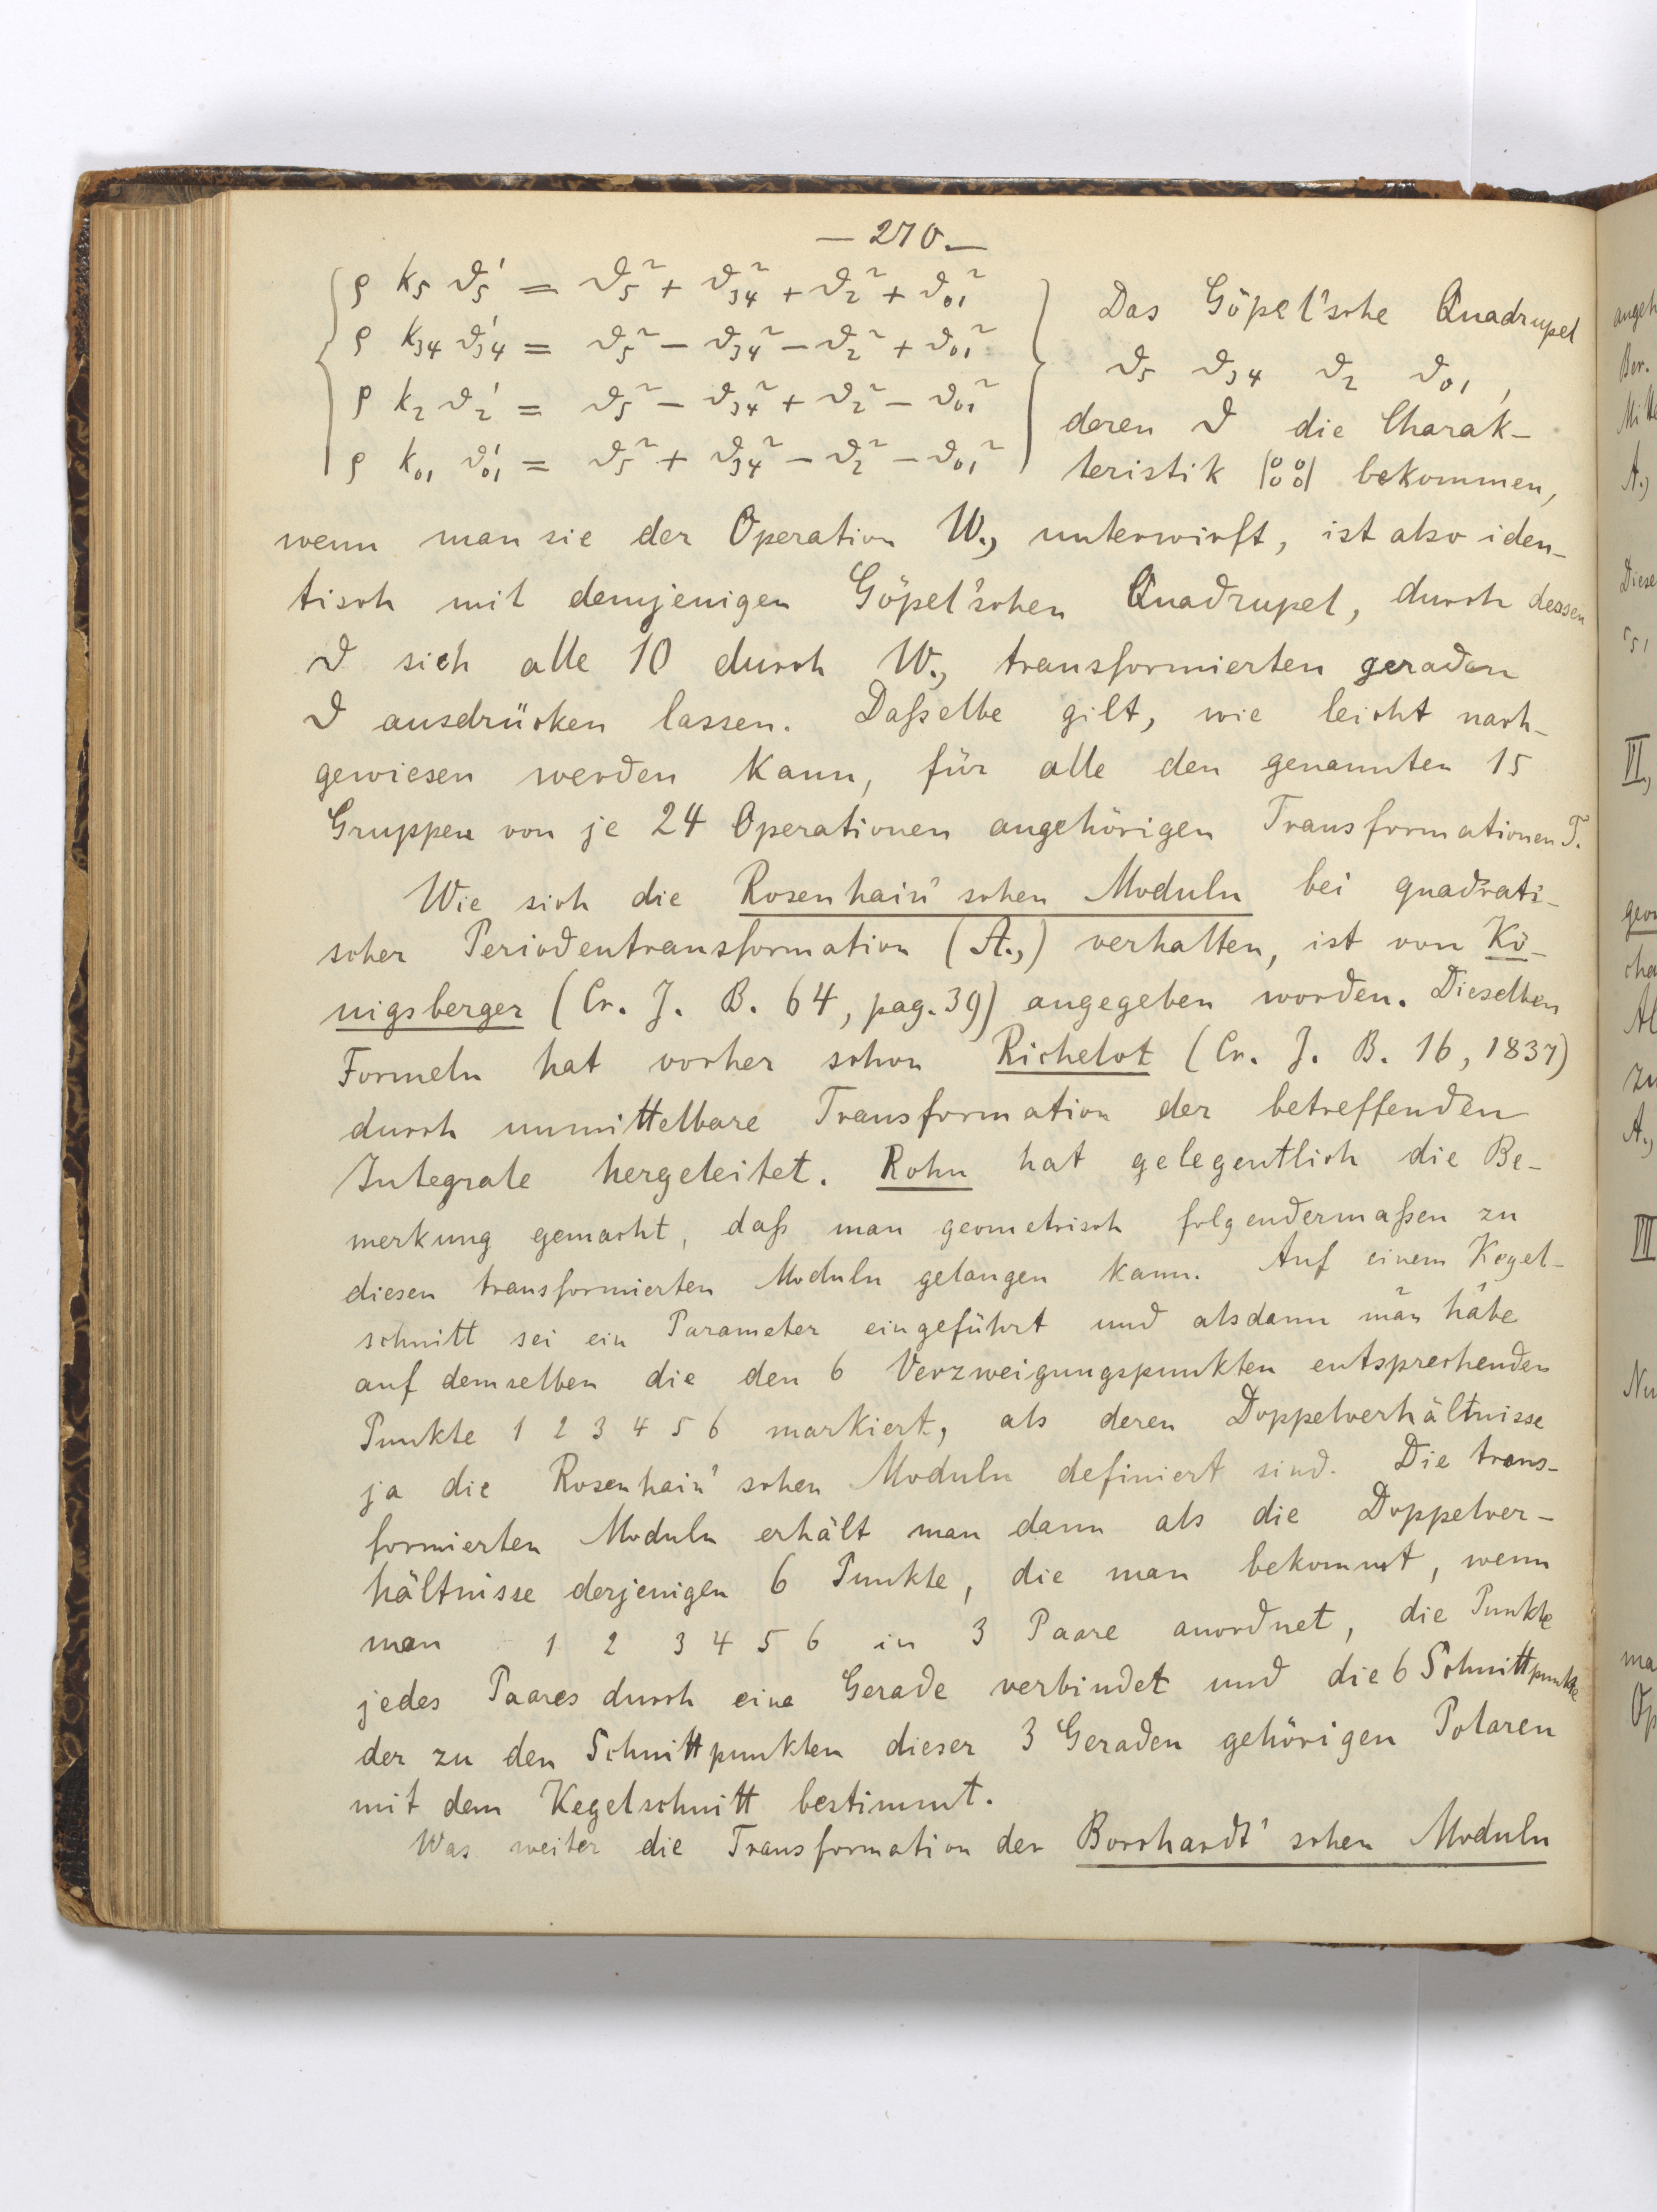 — 270. —
ρ k₅ ϑ₅′ = ϑ₅² + ϑ₃₄² + ϑ₂² + ϑ₀₁²
ρ k₃₄ ϑ₃₄′ = ϑ₅² − ϑ₃₄² − ϑ₂² + ϑ₀₁²
ρ k₂ ϑ₂′ = ϑ₅² − ϑ₃₄² + ϑ₂² − ϑ₀₁²
ρ k₀₁ ϑ₀₁′ = ϑ₅² + ϑ₃₄² − ϑ₂² − ϑ₀₁²
Das Göpel'sche Quadrupel
ϑ₅ ϑ₃₄ ϑ₂ ϑ₀₁,
deren ϑ die Charak-
teristik |0 0 0 0| bekommen,
wenn man sie der Operation W., unterwirft, ist also iden-
tisch mit demjenigen Göpel'schen Quadrupel, durch dessen
ϑ sich alle 10 durch W., transformierten geraden
ϑ ausdrücken lassen. Daßelbe gilt, wie leicht nach-
gewiesen werden kann, für alle den genannten 15
Gruppen von je 24 Operationen angehörigen Transformationen T.
Wie sich die Rosenhain'schen Moduln bei quadrati-
scher Periodentransformation (A.,) verhalten, ist von Kö-
nigsberger (Cr. J. B. 64, pag. 39) angegeben worden. Dieselben
Formeln hat vorher schon Richelot (Cr. J. B. 16, 1837)
durch unmittelbare Transformation der betreffenden
Integrale hergeleitet. Rohn hat gelegentlich die Be-
merkung gemacht, daß man geometrisch folgendermaßen zu
diesen transformierten Moduln gelangen kann. Auf einem Kegel-
schnitt sei ein Parameter eingeführt und alsdann man habe
auf demselben die den 6 Verzweigungspunkten entsprechenden
Punkte 1 2 3 4 5 6 markiert, als deren Doppelverhältnisse
ja die Rosenhain'schen Moduln definiert sind. Die trans-
formierten Moduln erhält man dann als die Doppelver-
hältnisse derjenigen 6 Punkte, die man bekommt, wenn
man 1 2 3 4 5 6 in 3 Paare anordnet, die Punkte
jedes Paares durch eine Gerade verbindet und die 6 Schnittpunkte
der zu den Schnittpunkten dieser 3 Geraden gehörigen Polaren
mit dem Kegelschnitt bestimmt.
Was weiter die Transformation der Borchardt'schen Moduln